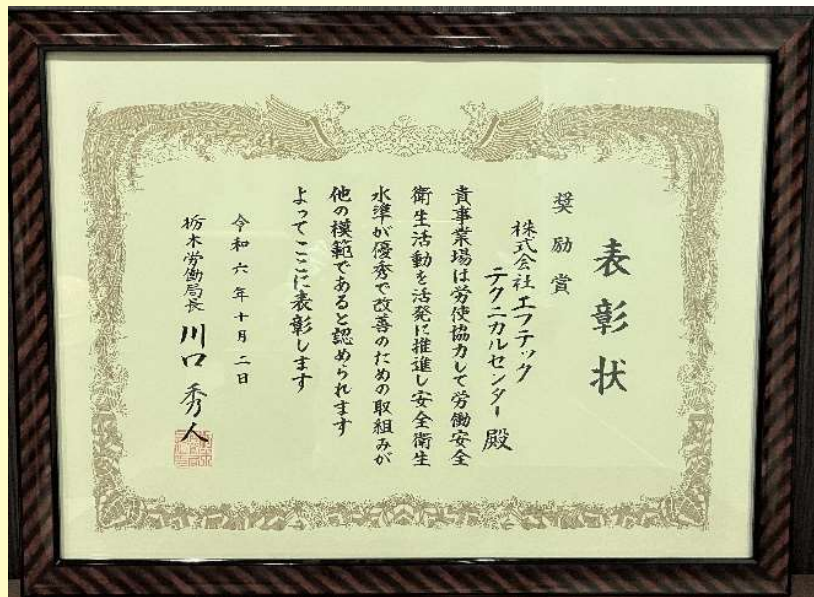 表彰状
奨励賞
株式会社エフテック
テクニカルセンター 殿
貴事業場は労使協力して労働安全
衛生活動を活発に推進し安全衛生
水準が優秀で改善のための取組みが
他の模範であると認められます
よってここに表彰します
令和六年十月二日
栃木労働局長 川口 秀人